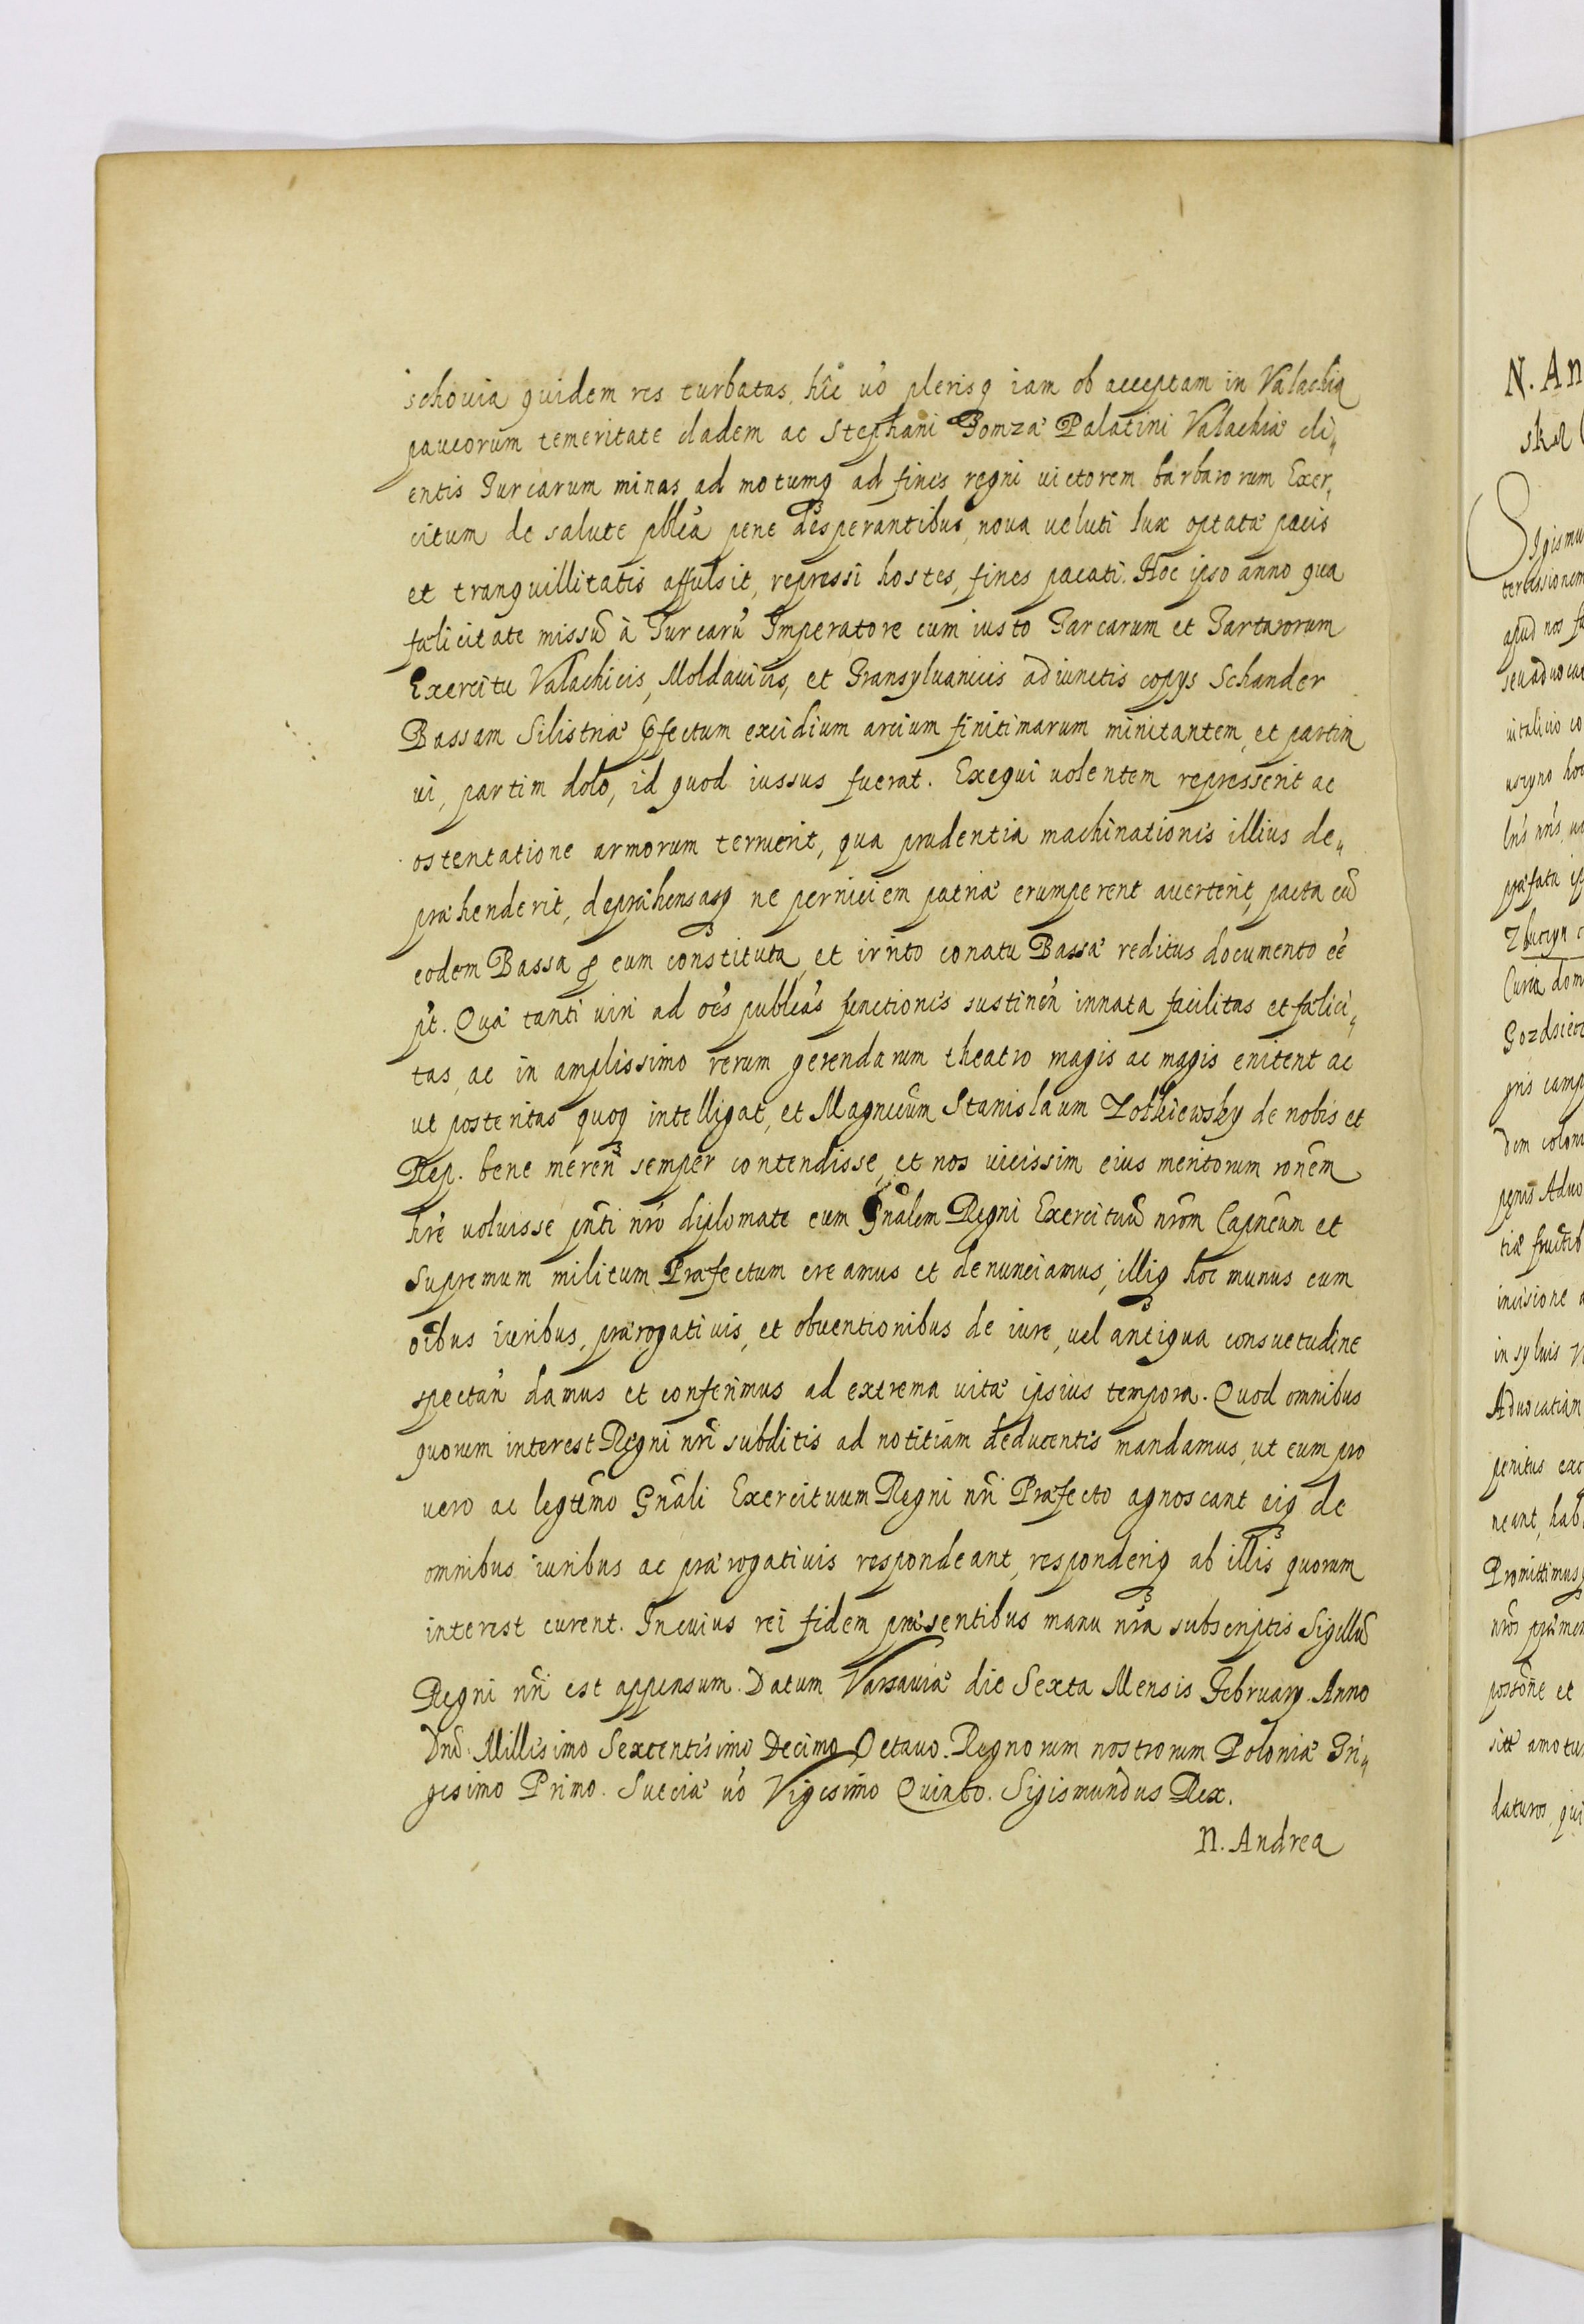 schouia quidem res turbatas, hîc uò plerisq iam ob acceptam in Valachia
paucorum temeritate cladem ac Stephani Tomzæ Palatini Valachiæ cli„
entis Turcarum minas ad motumq ad fines regni uictorem barbarorum Exer„
citum de salute pblca pene desperantibus, noua ueluti lux optatæ pacis
et tranquillitatis affulsit, repressi hostes, fines pacati. Hoc ipso anno qua
fælicitate missū à Turcarū Imperatore cum iusto Turcarum et Tartarorum
Exercitu Valachicis, Moldauicis, et Transyluanicis adiunctis copys Schander
Bassam Silistriæ Pfectum excidium arcium finitimarum minitantem, et partim
ui, partim dolo, id quod iussus fuerat. Exequi uolentem represserit ac
ostentatione armorum terruerit, qua prudentia machinationis illius de„
præhenderit, depræhensasq ne perniciem patriæ erumperent auerterit, pacta cū
eodem Bassa p eum constituta, et irrito conatu Bassæ reditus documento eē
pt. Quæ tanti uiri ad oēs publcas functionis sustinen innata facilitas et fælici„
tas, ac in amplissimo rerum gerendarum theatro magis ac magis enitent ac
ut posteritas quoq intelligat, et Magncum Stanislaum Zolkiewsky de nobis et
Rep. bene meren semper contendisse, et nos uicissim eius meritorum ronem
hre uoluisse pnti nro diplomate eum Gnalem Regni Exercituū nrom Capneum et
Supremum militum Præfectum creamus et denunciamus, illiq hoc munus cum
oibus iuribus, prærogatiuis, et obuentionibus de iure, uel antiqua consuetudine
spectan damus et conferimus ad extrema uitæ ipsius tempora. Quod omnibus
quorum interest Regni nri subditis ad notitiam deducentis mandamus, ut eum pro
uero ac legtimo Gnali Exercituum Regni nri Præfecto agnoscant eiq de
omnibus iuribus ac prærogatiuis respondeant, responderiq ab illis quorum
interest curent. In cuius rei fidem præsentibus manu nra subscriptis Sigillū
Regni nri est appensum. Datum Varsauiæ die Sexta Mensis February. Anno
Dni. Millesimo Sexcentisimo Decimo Octauo. Regnorum nostrorum Poloniæ Tri„
gesimo Primo. Sueciæ uò Vigesimo Quinto. Sigismundus Rex.
N. Andrea
N. An
Sigismu
terassionem
apud nos fa
seu aduoca
uitalicio co
præfata ip
Curia dom
Gozdsiec
penes Aduo
tiæ fructib
incisione a
in syluis
Aduocatiam
penitus exc
neant, hab
Promittimus
sitt amotu
daturos, qui